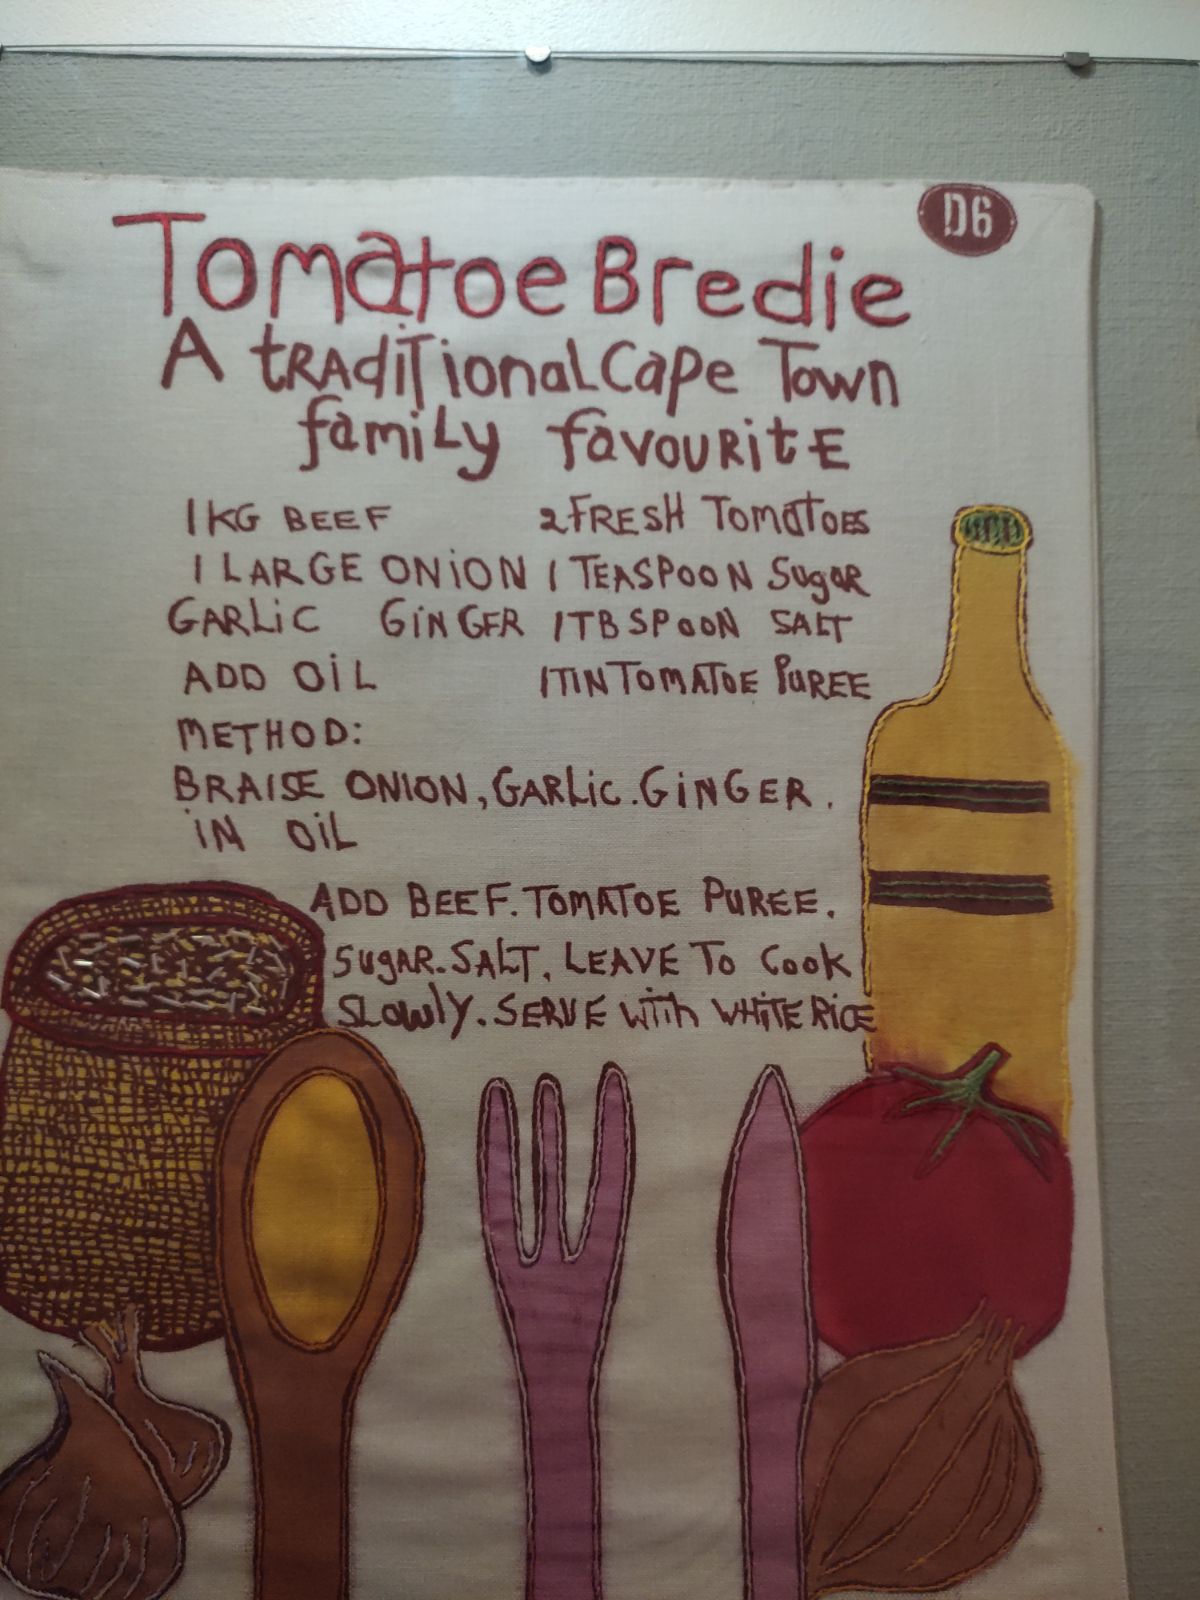 D6
Tomatoe Bredie
A tRAdiTionaL Cape Town
family favouRitE
1KG BEEF 2 FRESH TomaToES
1 LARGE ONiON 1 TEASPOON SugaR
GARLiC GiNGER 1TBSPOON SALT
ADD OiL 1TIN TOMATOE PUREE
METHOD:
BRAISE ONION, GARLiC. GiNGER.
iN OiL
ADD BEEF. TOMATOE PUREE.
SugAR. SALT. LEAVE To Cook
SLowlY. SERVE with WHiTE RiCE